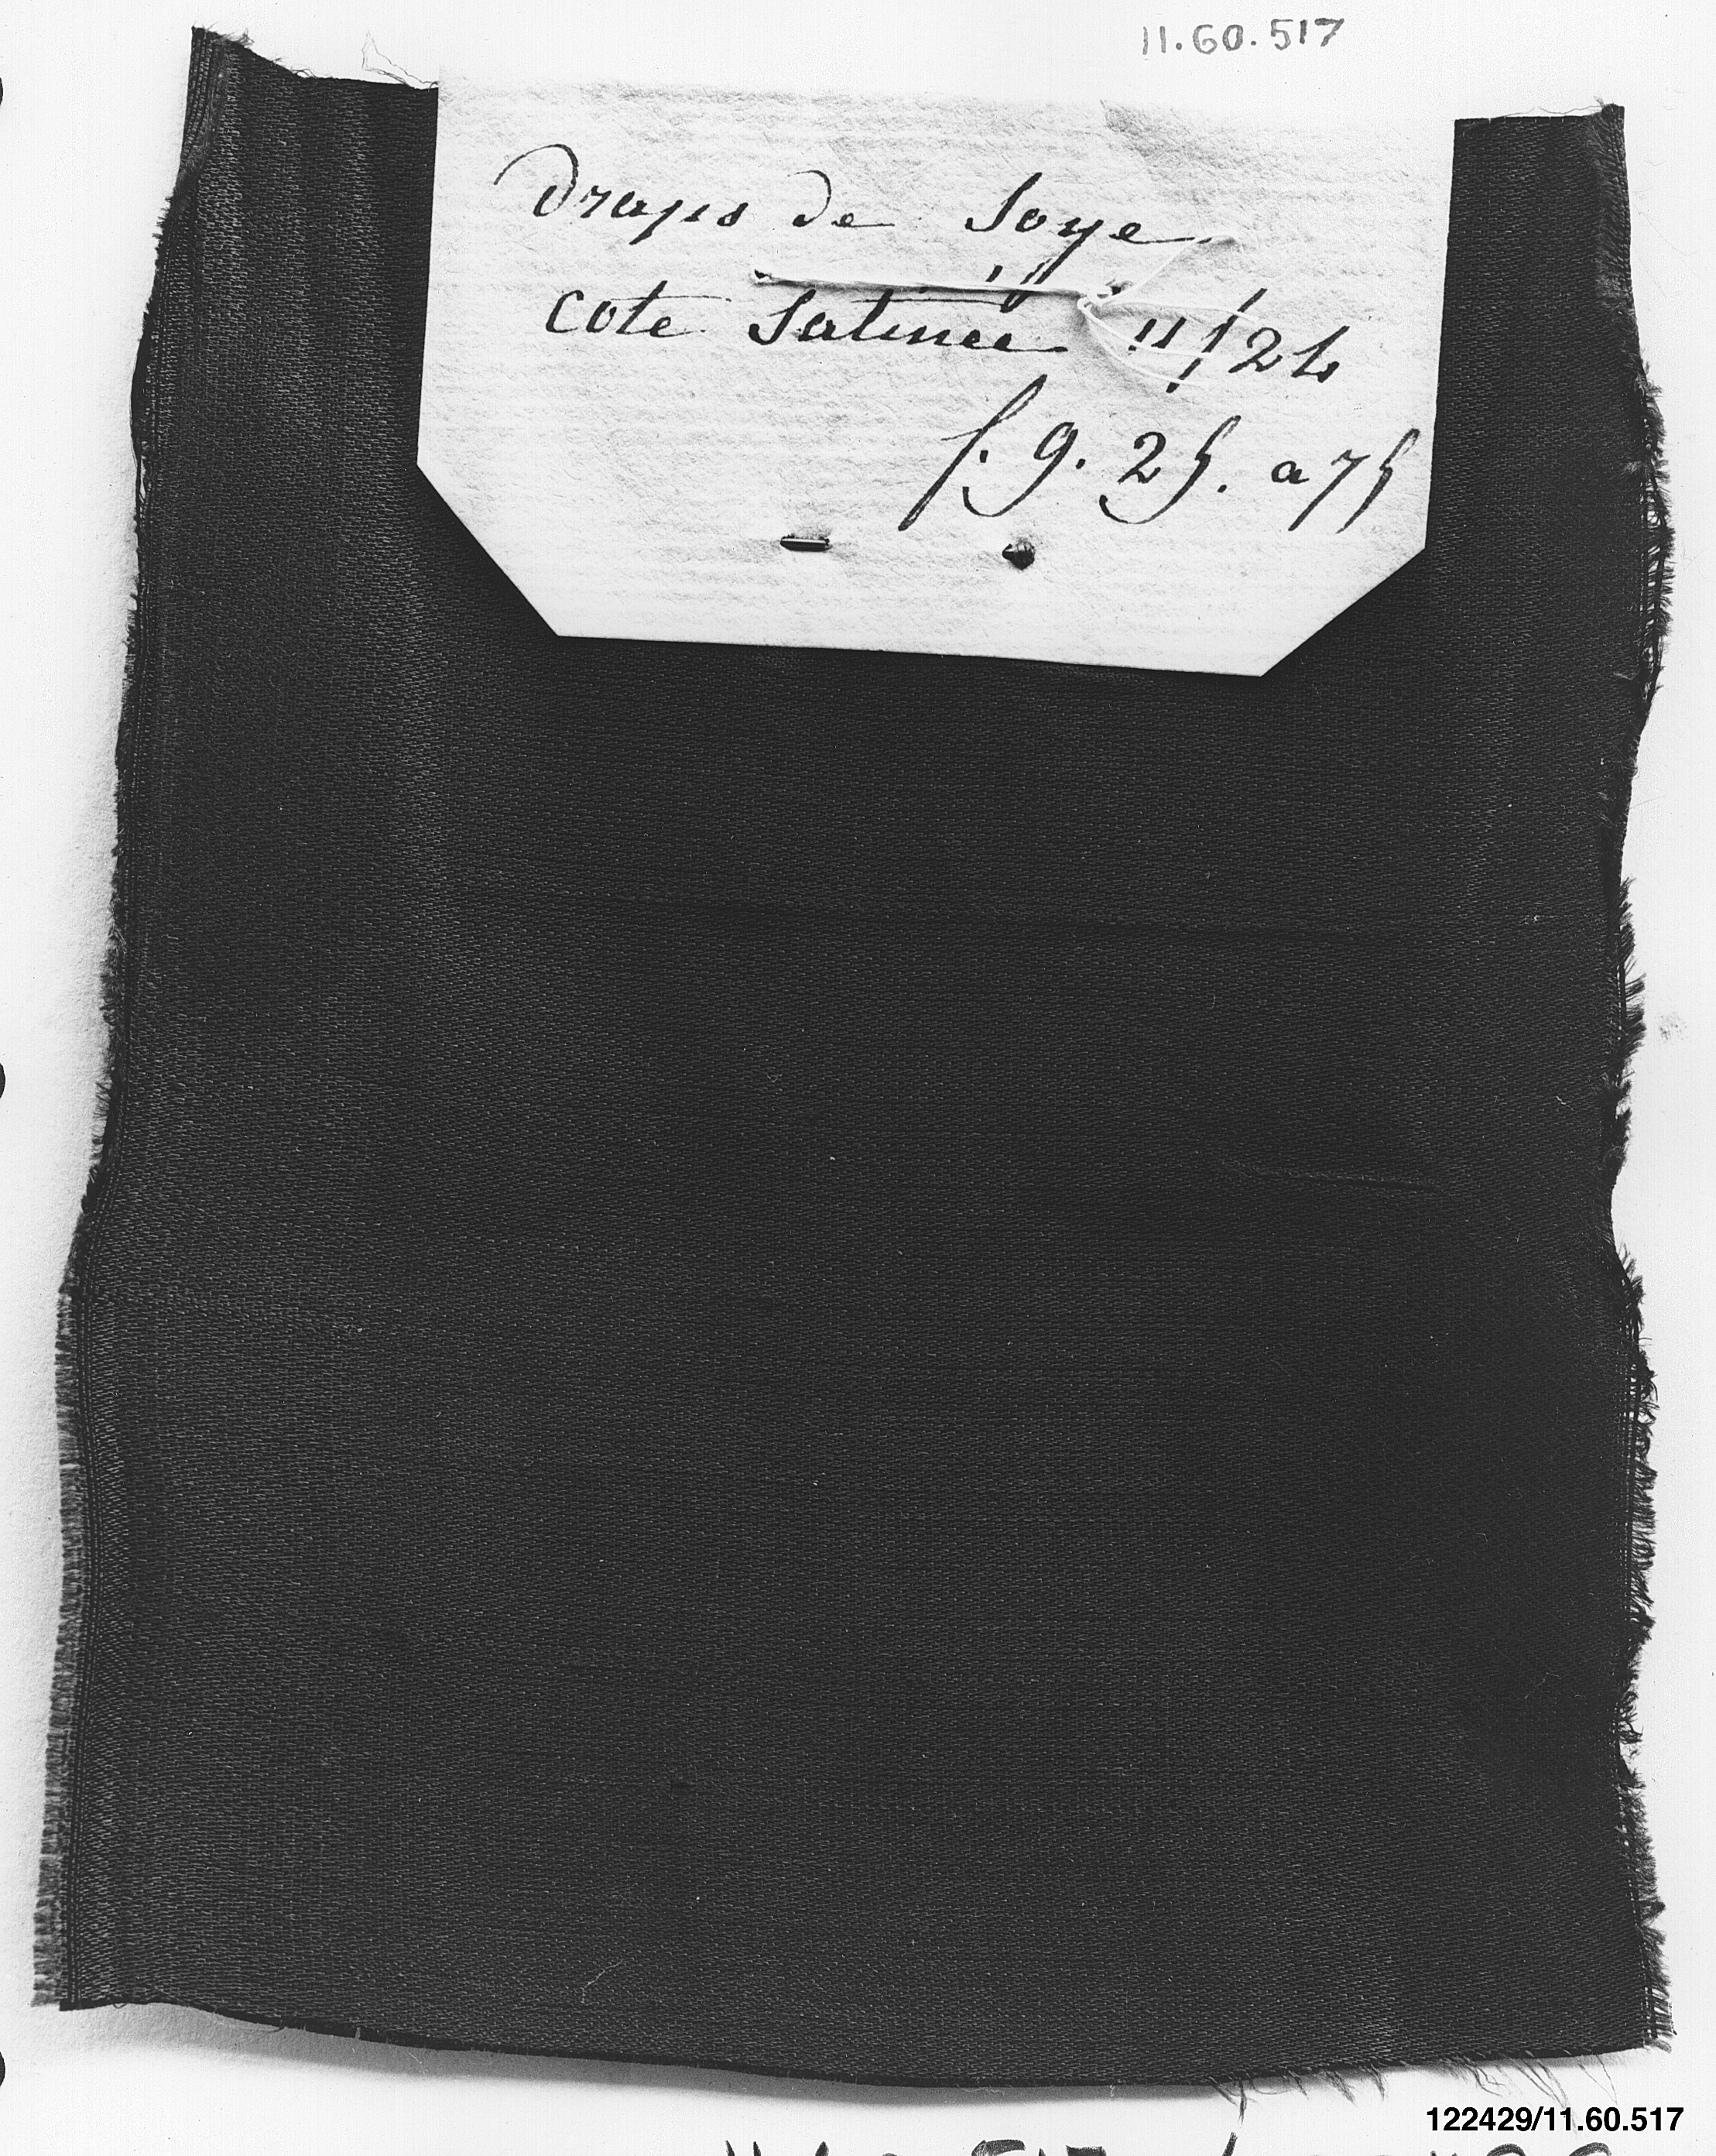 11.60.517
Draps de Soye
Cote Satinee " 11/24
f. 9. 25. a 75
122429/11.60.517